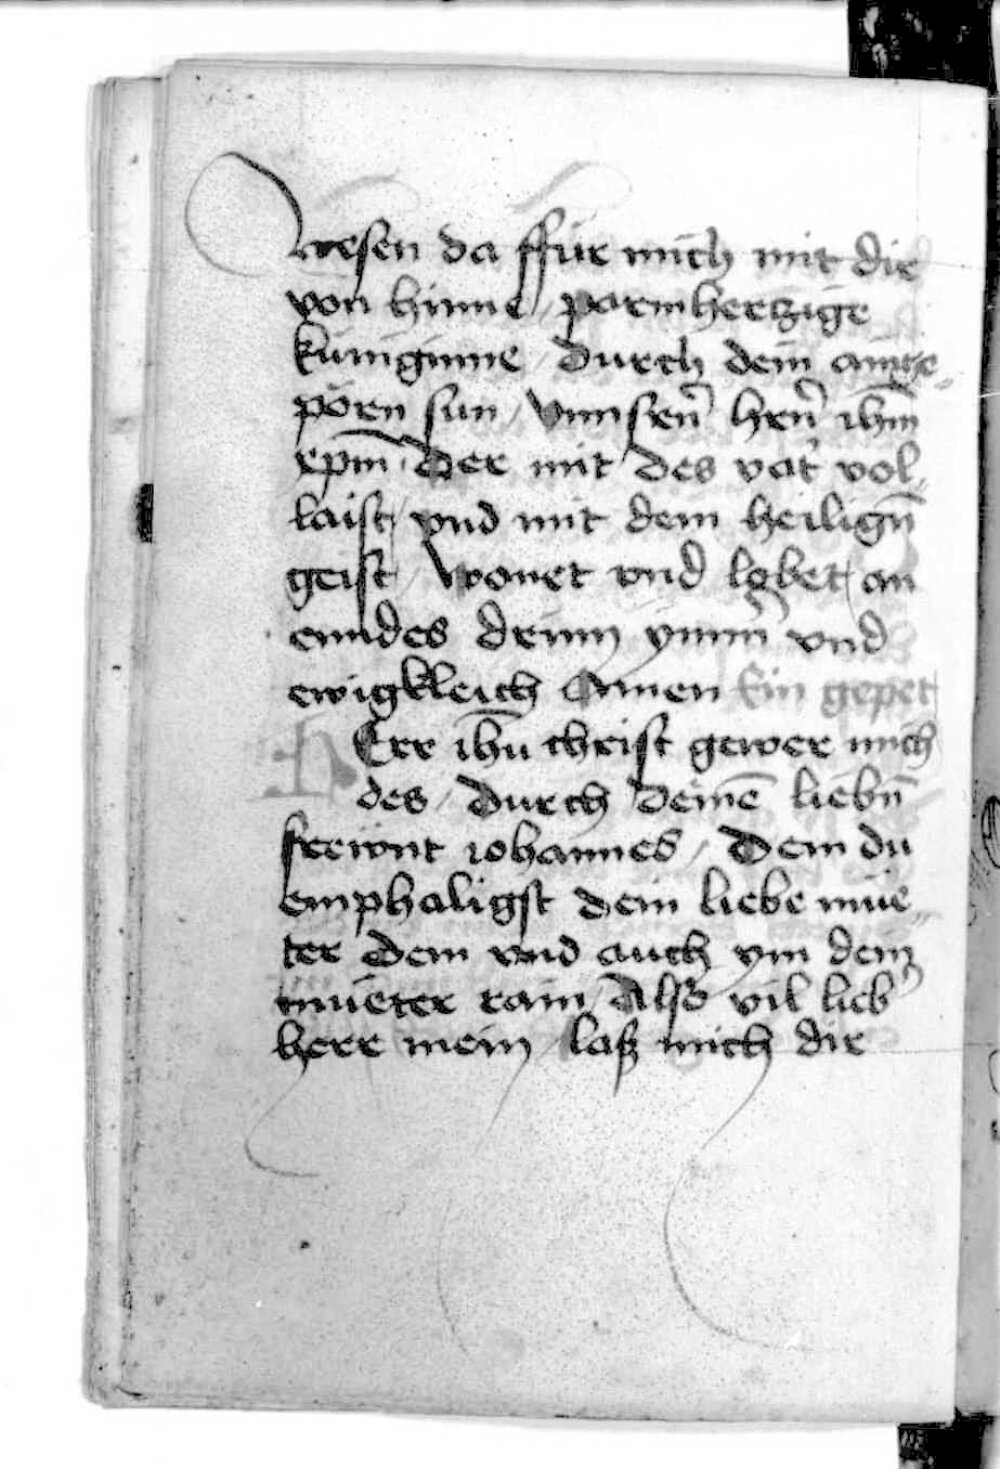 wesen da ffür mich mit dir
von hinne / parmhertzige
küniginne / durch dein ainge-
pören sun / Vnnsern̄ hrn̄ ihm̄
xpm̄ · der mit des vat' vol-
laist / vnd mit dem heilign̄
geist / wonet vnd lebet / an
enndes drinn ymm̄' vnd
ewigkleich Amen Ein gepet
HErr ihū christ gewer mich
des / durch deinē liebn̄
freẅnt iohannes / Dem du
emphaligst dein liebe müe-
ter Dem vnd auch ym dem
müeter rain / Also vil lieb'
herr mein / lasz mich dir